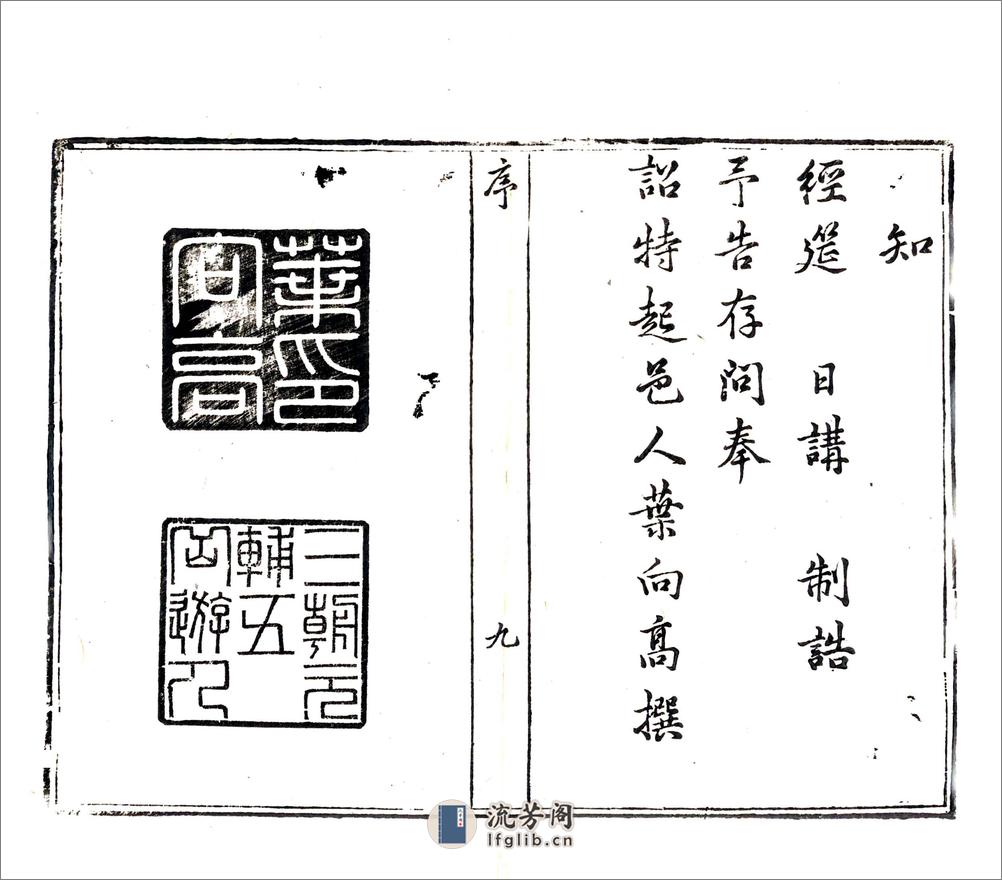 知
經筵　日講　制誥
予告存問奉
詔特起邑人葉向高撰
序
九
葉印
向高
三朝元
輔五
岳遊人
流芳阁
lfglib.cn